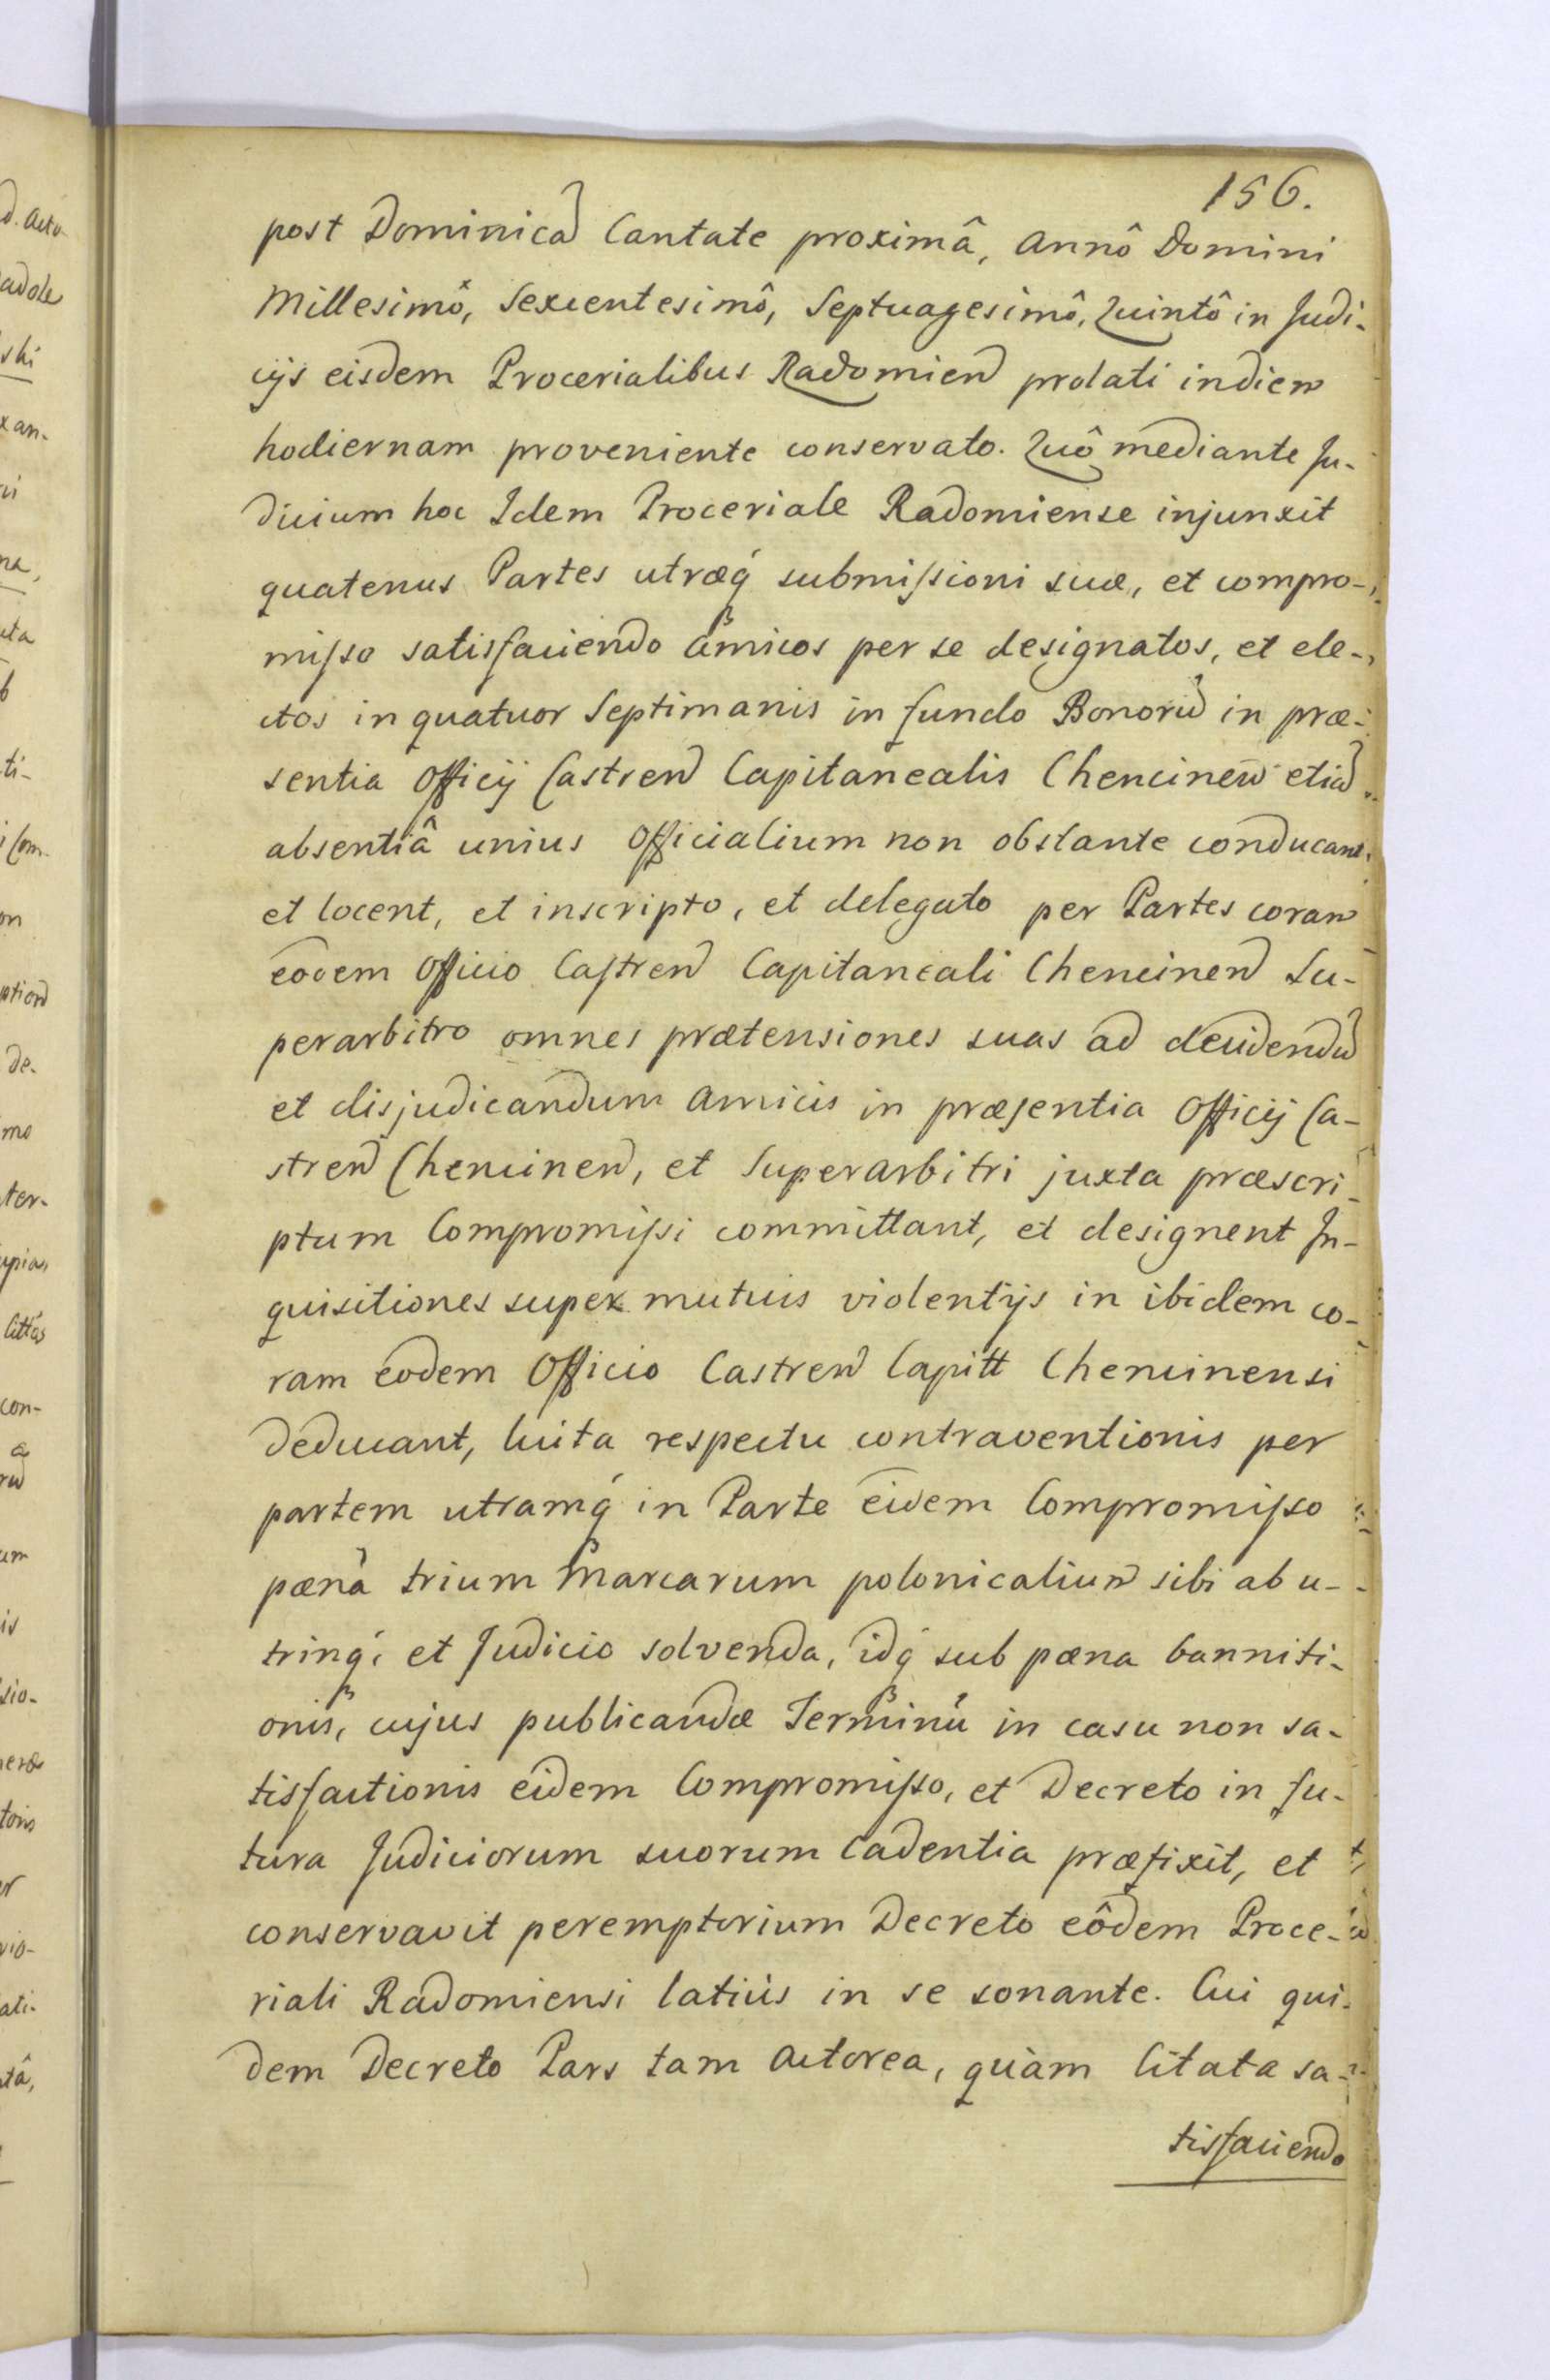 156.
post Dominicã Cantate proximâ, Annô Domini
Millesimô, Sexcentesimô, Septuagesimô, Quintô in Judi-
cijs eisdem Procerialibus Radomien prolati in diem
hodiernam proveniente conservato. Quô mediante Ju-
dicium hoc Idem Proceriale Radomiense injunxit
quatenus Partes utræq́ submissioni suæ, et compro-
misso satisfaciendo Amicos per se designatos, et ele-
ctos in quatuor Septimanis in fundo Bonorũ in præ-
sentia Officij Castren Capitanealis Chencinen etiã
absentiâ unius Officialium non obstante conducant
et locent, et inscripto, et delegato per Partes coram
eodem Officio Castren Capitaneali Chencinen Su-
perarbitro omnes prætensiones suas ad decidendũ
et disjudicandum Amicis in præsentia Officij Ca-
stren Chencinen, et Superarbitri juxta præscri-
ptum Compromissi committant, et designent In-
quisitiones super mutuis violentijs in ibidem co-
ram eodem Officio Castren Capitt Chencinensi
deducant, luita respectu contraventionis per
partem utramq́ in Parte eidem Compromisso
pæná trium Marcarum polonicalium sibi ab u-
trinq́, et Judicio solvenda, idq́ sub pæna banniti-
onis, cujus publicandæ Terminũ in casu non sa-
tisfactionis eidem Compromisso, et Decreto in fu-
tura Judiciorum suorum Cadentia præfixit, et
conservavit peremptorium Decreto eôdem Proce-
riali Radomiensi latiùs in se sonante. Cui qui-
dem Decreto Pars tam Actorea, quàm Citata sa-
tisfaciendo